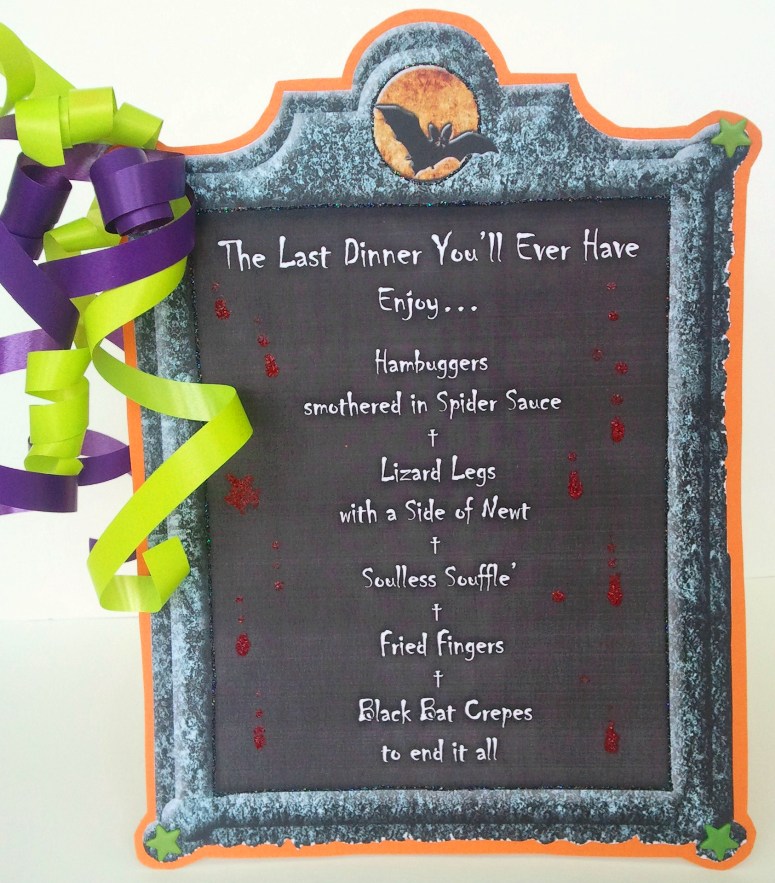 The Last Dinner You'll Ever Have
Enjoy...
Hambuggers
smothered in Spider Sauce
†
Lizard Legs
with a Side of Newt
†
Soulless Souffle'
†
Fried Fingers
†
Black Bat Crepes
to end it all